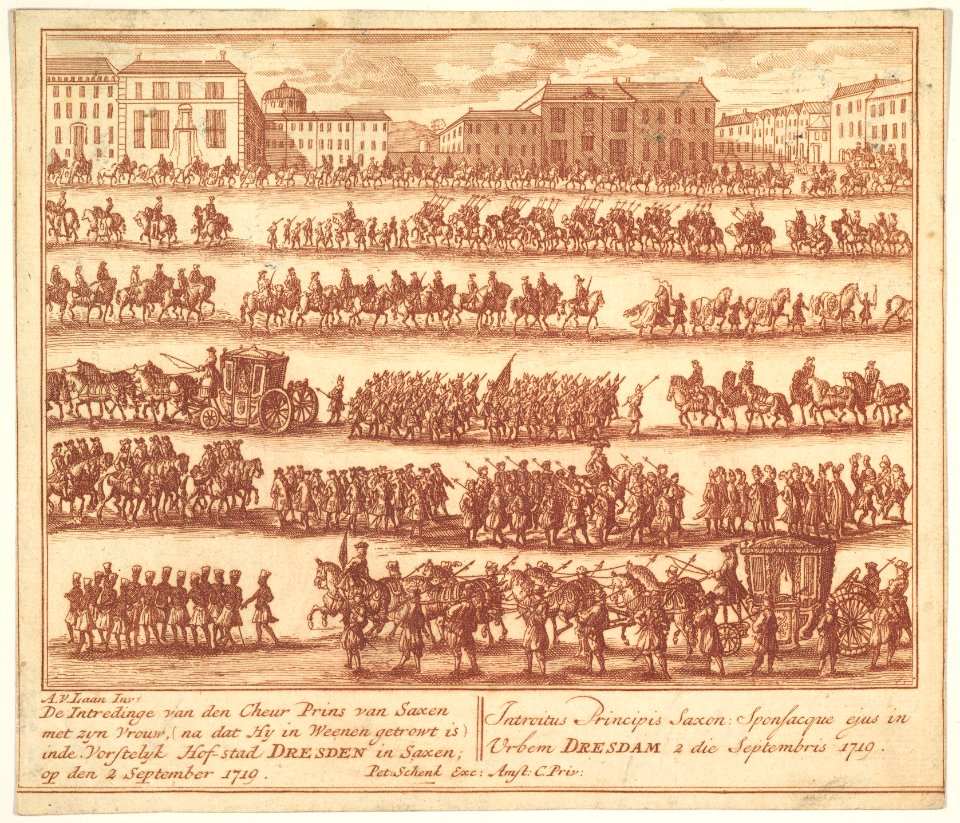 A. V. Laan Inv:
De Intredinge van den Cheur Prins van Saxen
met zyn Vrouw, (na dat Hy in Weenen getrowt is)
inde Vorstelyk Hof-stad DRESDEN in Saxen;
op den 2 September 1719.
Introitus Principis Saxon: Sponsacque ejus in
Urbem DRESDAM 2 die Septembris 1719.
Pet: Schenk Exc: Amst: C. Priv: